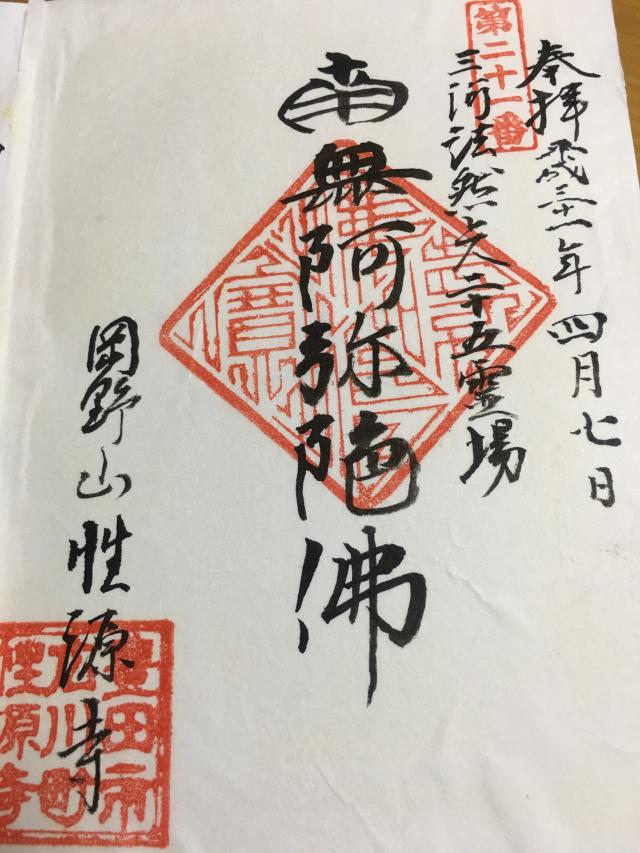 第二十一番
奉拝 平成三十一年 四月七日
三河法然上人二十五霊場
南無阿弥陀佛
岡野山 性源寺
豊田市
川町
性源寺